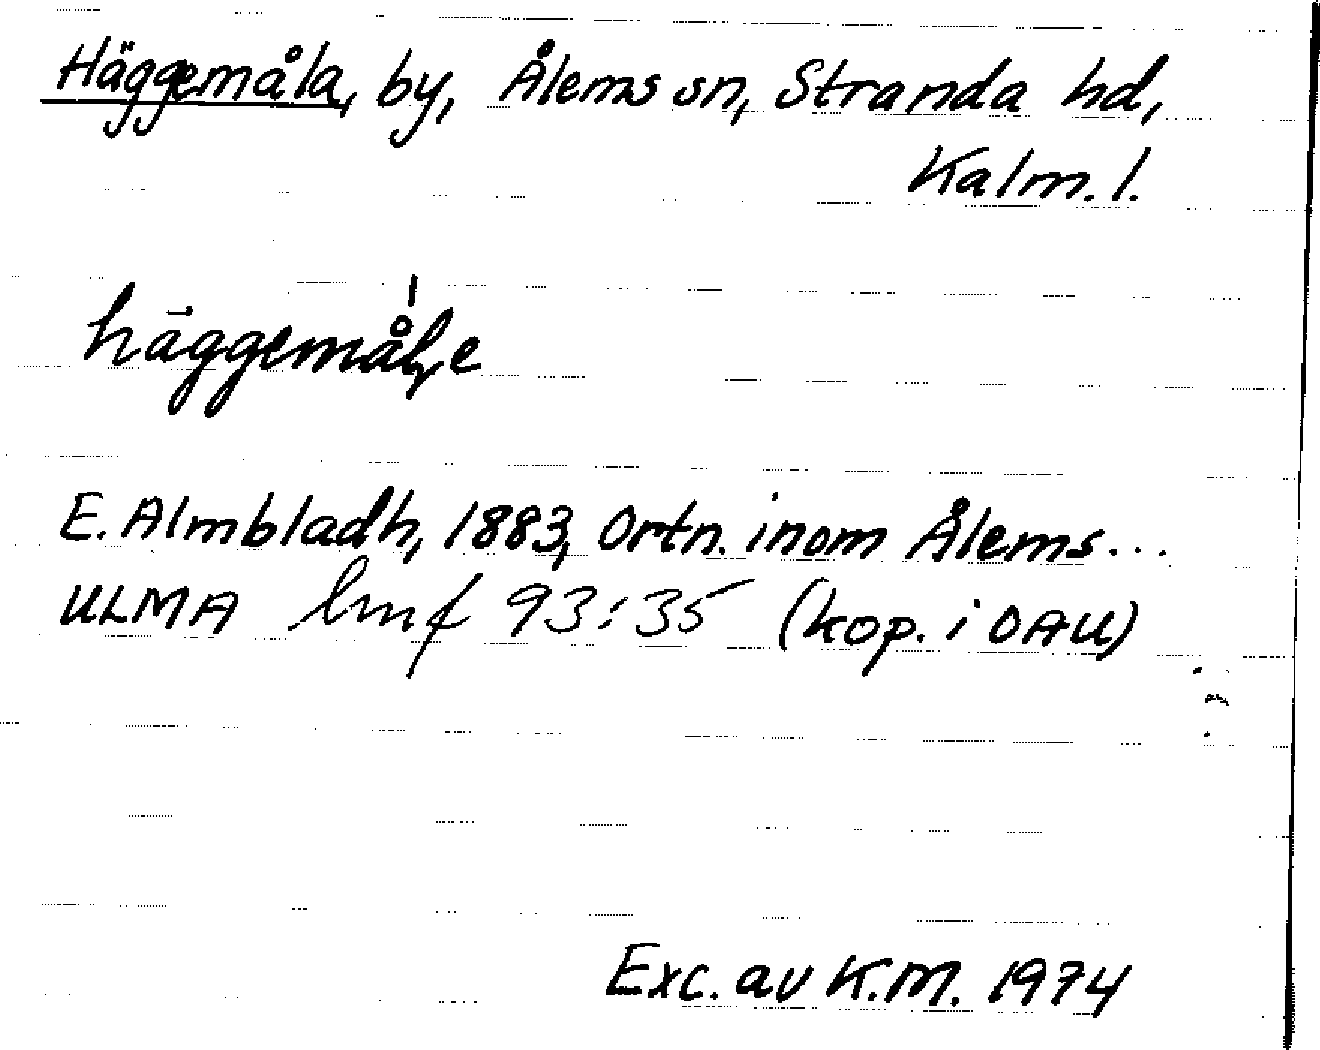 Häggemåla, by, Ålems sn, Stranda hd,
Kalm. l.
häggemåḷe
E. Almbladh, 1883, Ortn. inom Ålems...
ULMA lmf 93:35 (kop. i OAU)
Exc. av K.M. 1974